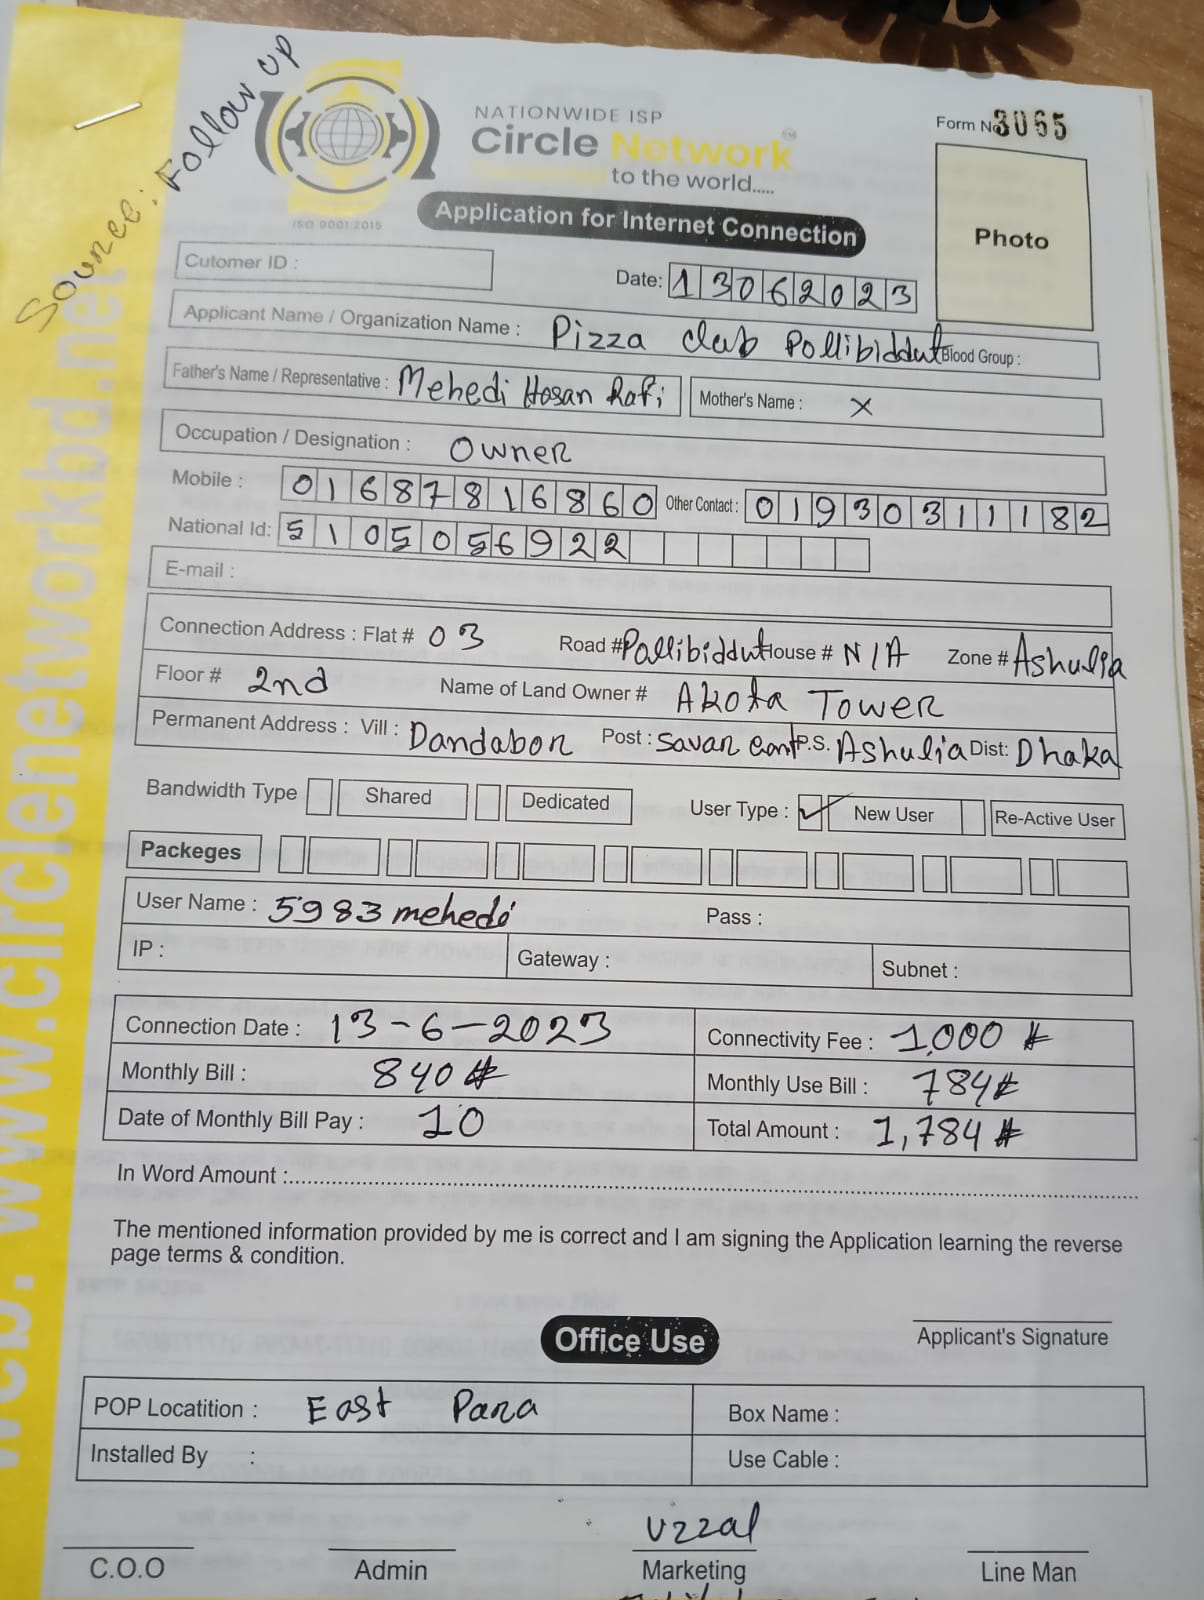 Source: Follow up
NATIONWIDE ISP
Circle Network™
to the world.....
ISO 9001:2015
Form No 3065
Photo
Application for Internet Connection
Cutomer ID :
Date: 13062023
Applicant Name / Organization Name : Pizza club Pollibiddut Blood Group :
Father's Name / Representative : Mehedi Hosan Rafi Mother's Name : X
Occupation / Designation : Owner
Mobile : 01687816860 Other Contact : 01930311182
National Id: 5105056922
E-mail :
Connection Address : Flat # 03 Road # Pallibiddut House # N/A Zone # Ashulia
Floor # 2nd Name of Land Owner # Akota Tower
Permanent Address : Vill : Dandabor Post : Savar cant P.S. Ashulia Dist: Dhaka
Bandwidth Type Shared Dedicated User Type : ✓ New User Re-Active User
Packeges
User Name : 5983mehedi Pass :
IP : Gateway : Subnet :
Connection Date : 13-6-2023 Connectivity Fee : 1,000
Monthly Bill : 840 Monthly Use Bill : 784
Date of Monthly Bill Pay : 10 Total Amount : 1,784
In Word Amount :
The mentioned information provided by me is correct and I am signing the Application learning the reverse
page terms & condition.
Applicant's Signature
Office Use
POP Locatition : East Para Box Name :
Installed By : Use Cable :
Uzzal
C.O.O Admin Marketing Line Man
web: www.circlenetworkbd.net